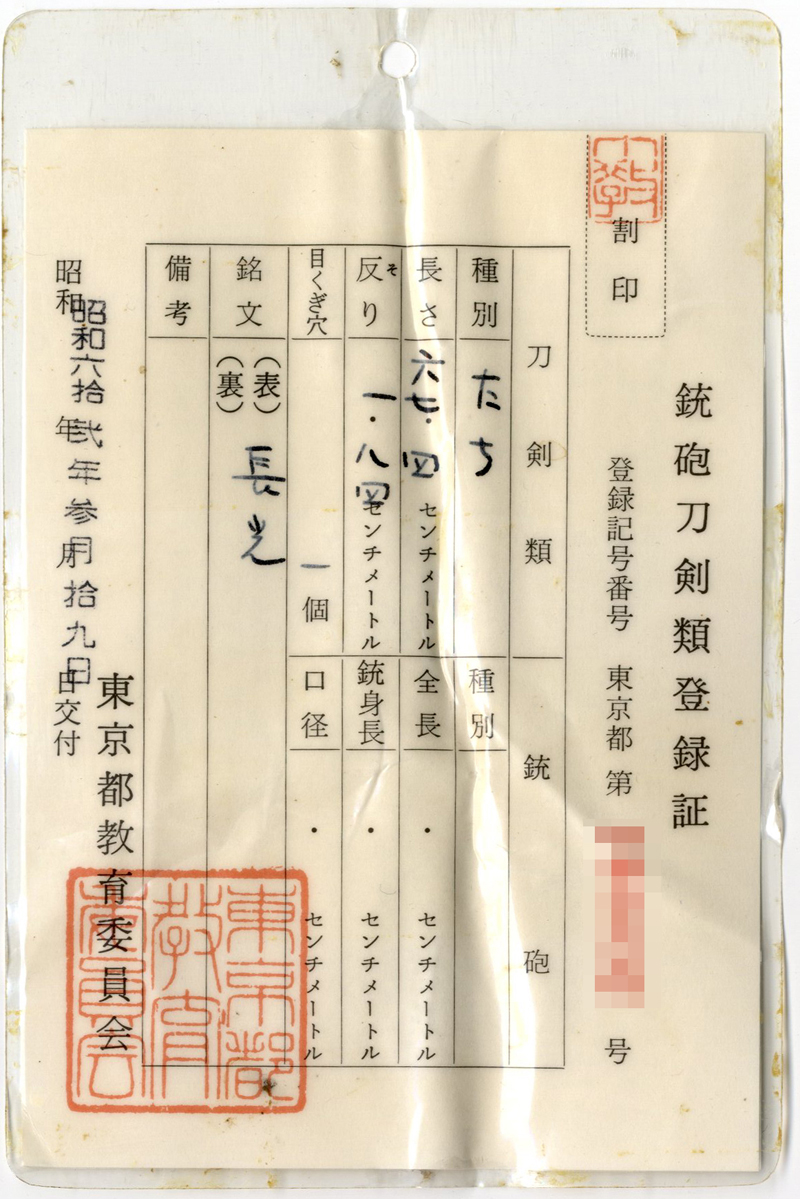 銃砲刀剣類登録証
割印
登録記号番号 東京都 第 号
刀剣類
種別 たち
長さ 六七・四 センチメートル
反り 一・八四 センチメートル
そ
目くぎ穴 一 個
銘文 (表) 長光
(裏)
備考
銃砲
種別
全長 ・ センチメートル
銃身長 ・ センチメートル
口径 ・ センチメートル
東京都教育委員会
東京都教育委員会
昭和 年 月 日交付
昭和六拾弐年参月拾九日